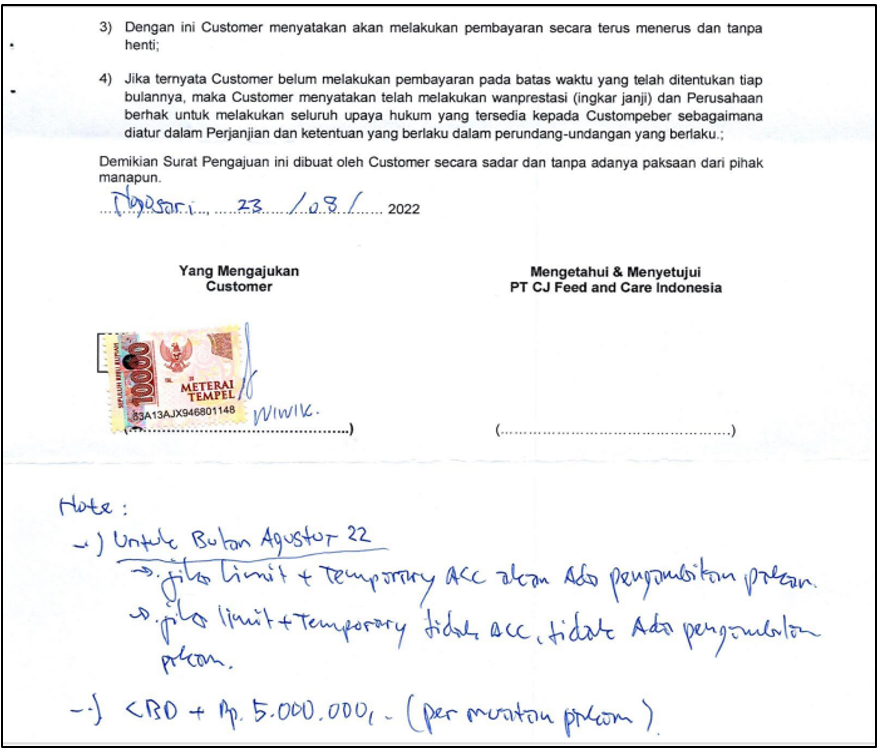 3) Dengan ini Customer menyatakan akan melakukan pembayaran secara terus menerus dan tanpa
henti;
4) Jika ternyata Customer belum melakukan pembayaran pada batas waktu yang telah ditentukan tiap
bulannya, maka Customer menyatakan telah melakukan wanprestasi (ingkar janji) dan Perusahaan
berhak untuk melakukan seluruh upaya hukum yang tersedia kepada Custompeber sebagaimana
diatur dalam Perjanjian dan ketentuan yang berlaku dalam perundang-undangan yang berlaku.;
Demikian Surat Pengajuan ini dibuat oleh Customer secara sadar dan tanpa adanya paksaan dari pihak
manapun.
23 / 08 / 2022
Yang Mengajukan
Customer
Mengetahui & Menyetujui
PT CJ Feed and Care Indonesia
SEPULUH RIBU RUPIAH
10000
TGL. 20
METERAI
TEMPEL
63A13AJX946801148
WIWIK.
(..............................................)
(..............................................)
Note :
-) Untuk Bulan Agustus 22
→. jika limit + Temporary ACC akan Ada pengambilan pakan.
→. jika limit + Temporary tidak ACC, tidak Ada pengambilan
pakan.
-) CBD + Rp. 5.000.000,- (per muatan pakan)